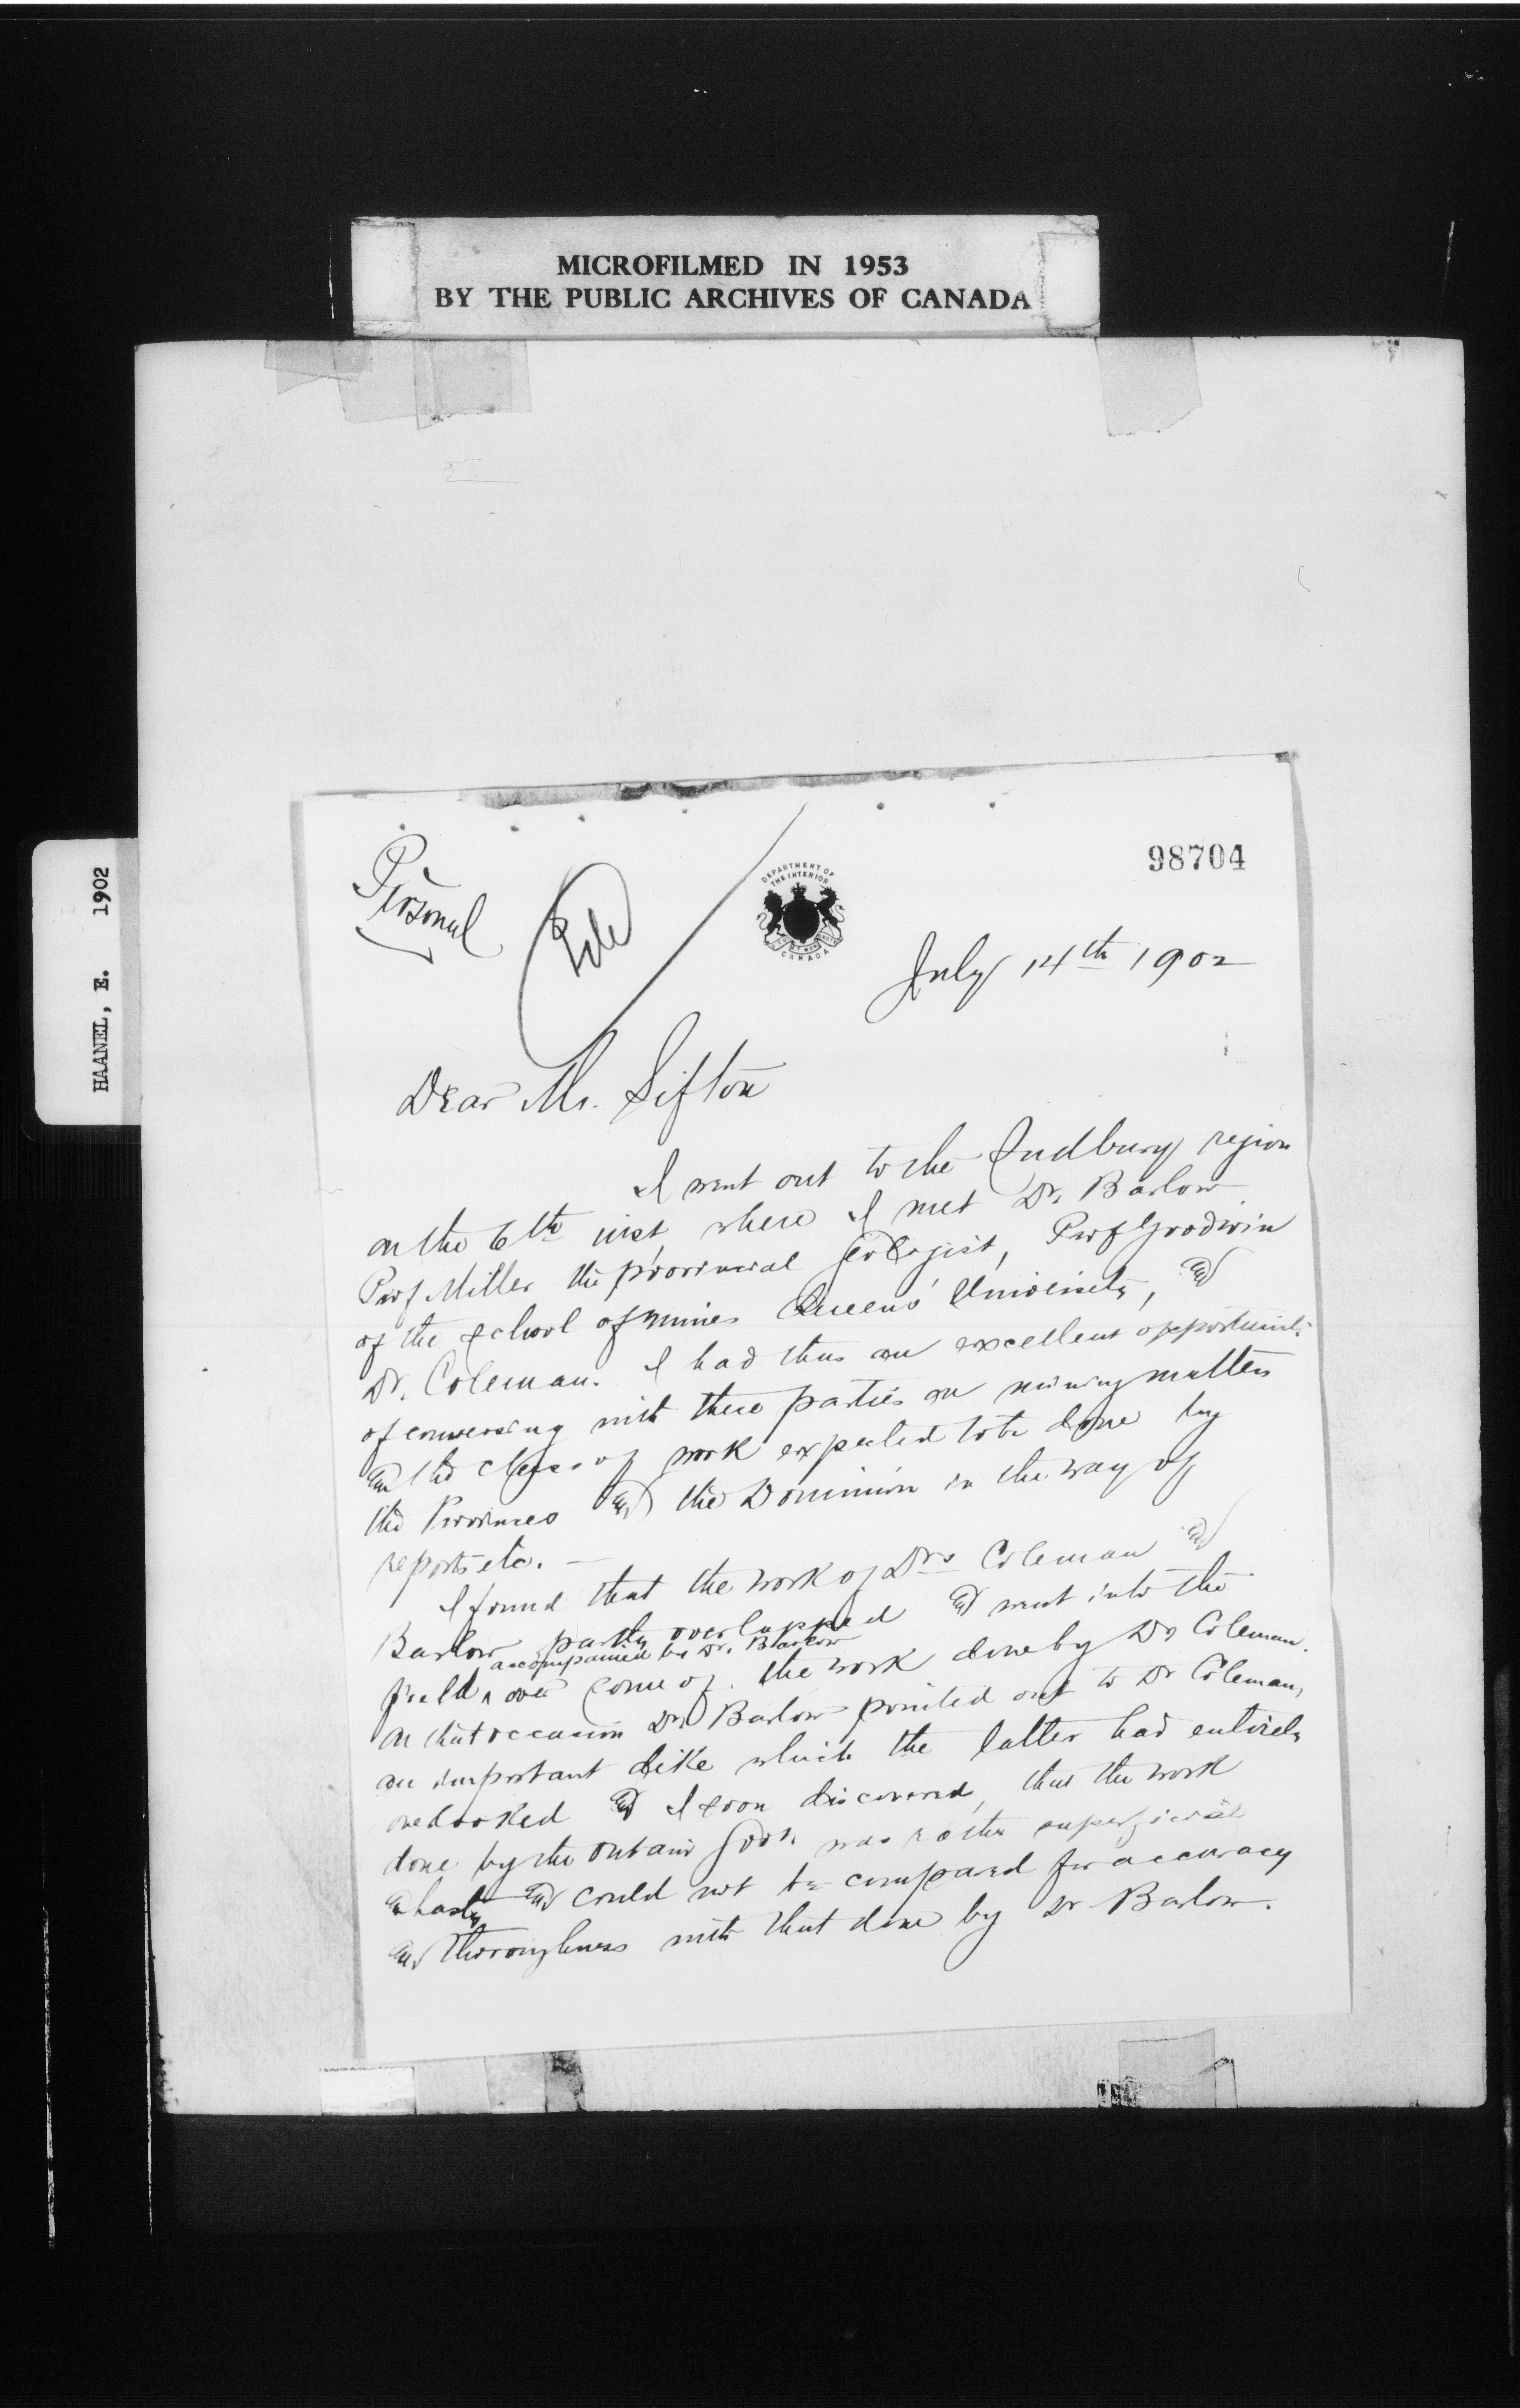 MICROFILMED IN 1953
BY THE PUBLIC ARCHIVES OF CANADA
HAANEL, E. 1902
98704
Personal
File
DEPARTMENT OF
THE INTERIOR
CANADA
July 14th 1902
Dear Mr. Sifton
I went out to the Sudbury region
on the 6th inst, where I met Dr. Barlow
Prof Miller the provincial geologist, Prof Goodwin
of the school of mines Queens' University, and
Dr. Coleman. I had thus an excellent opportunity
of conversing with these parties on mining matters
and the class of work expected to be done by
the Provinces and the Dominion in the way of
reports etc. —
I found that the work of Drs Coleman and
Barlow partly overlapped and went into the
accompanied by Dr. Barlow
field ^ over some of the work done by Dr Coleman.
On that occasion Dr. Barlow pointed out to Dr Coleman,
an important dike which the latter had entirely
overlooked and I soon discovered, that the work
done by the Ontario Govt. was rather superficial
and hasty and could not be compared for accuracy
and thoroughness with that done by Dr Barlow.